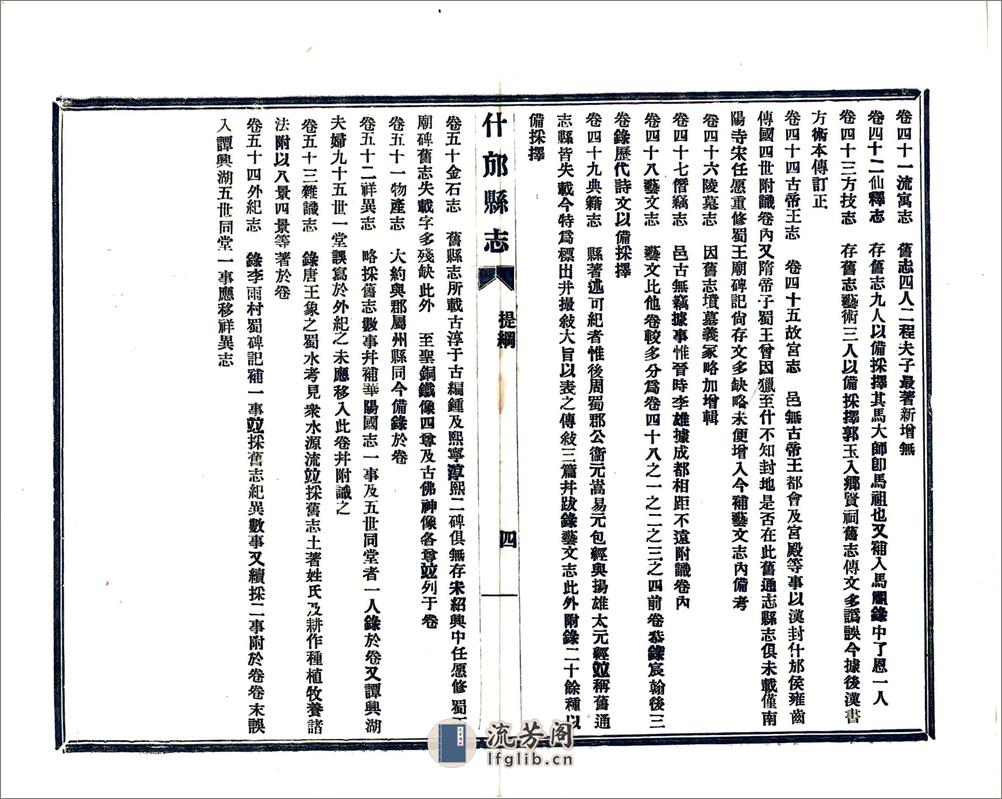 卷四十一流寓志　舊志四人二程夫子最著新增無
卷四十二仙釋志　存舊志九人以備採擇其馬大師卽馬祖也又補入馬顒錄中了恩一人
卷四十三方技志　存舊志藝術三人以備採擇郭玉入鄉賢祠舊志傳文多譌誤今據後漢書
方術本傳訂正
卷四十四古帝王志　卷四十五故宮志　邑無古帝王都會及宮殿等事以漢封什邡侯雍齒
傳國四世附識卷內又隋帝子蜀王曾因獵至什不知封地是否在此舊通志縣志俱未載僅南
陽寺宋任愿重修蜀王廟碑記尙存文多缺略未便增入今補藝文志內備考
卷四十六陵墓志　因舊志墳墓義冢略加增輯
卷四十七僭竊志　邑古無竊據事惟晉時李雄據成都相距不遠附識卷內
卷四十八藝文志　藝文比他卷較多分爲卷四十八之一之二之三之四前卷恭錄宸翰後三
卷錄歷代詩文以備採擇
卷四十九典籍志　縣著述可紀者惟後周蜀郡公衞元嵩易元包經與揚雄太元經竝稱舊通
志縣皆失載今特爲標出幷撮敍大旨以表之傳敍三篇幷跋錄藝文志此外附錄二十餘種以
備採擇
什邡縣志
提綱
四
卷五十金石志　舊縣志所載古淳于古編鍾及熙寧淳熙二碑俱無存宋紹興中任愿修蜀王
廟碑舊志失載字多殘缺此外　至聖銅鐵像四尊及古佛神像各尊竝列于卷
卷五十一物產志　大約與郡屬州縣同今備錄於卷
卷五十二祥異志　略採舊志數事幷補華陽國志一事及五世同堂者一人錄於卷又譚興湖
夫婦九十五世一堂誤寫於外紀之未應移入此卷幷附識之
卷五十三雜識志　錄唐王象之蜀水考見衆水源流竝採舊志土著姓氏及耕作種植牧養諸
法附以八景四景等著於卷
卷五十四外紀志　錄李雨村蜀碑記補一事竝採舊志紀異數事又續採二事附於卷卷末誤
入譚興湖五世同堂一事應移祥異志
流芳阁
lfglib.cn